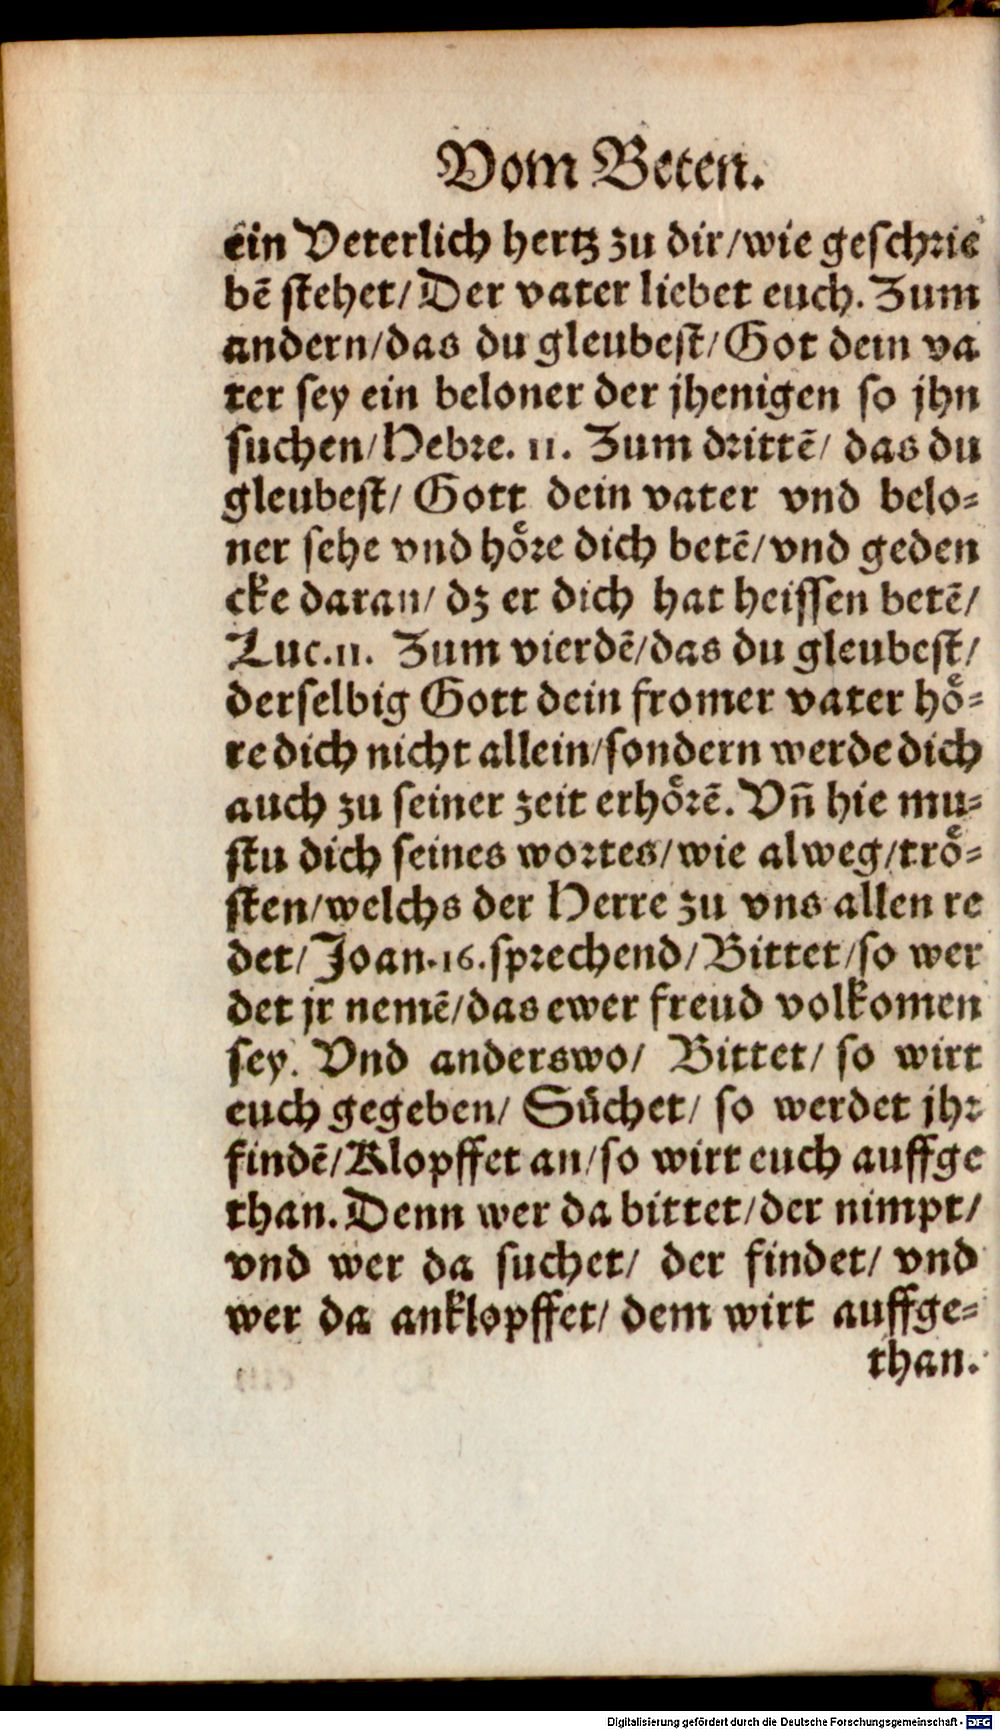 Vom Beten.
ein Veterlich hertz zu dir/wie geschrie
bē stehet/Der vater liebet euch. Zum
andern/das du gleubest/Got dein va
ter sey ein beloner der jhenigen so jhn
suchen/Hebre. 11. Zum drittē/ das du
gleubest/ Gott dein vater vnd belo⸗
ner sehe vnd hoͤre dich betē/vnd geden
cke daran/ dz er dich hat heissen betē/
Luc.11. Zum vierdē/das du gleubest/
derselbig Gott dein fromer vater hoͤ⸗
re dich nicht allein/sondern werde dich
auch zu seiner zeit erhoͤrē. Vñ hie mu⸗
stu dich seines wortes/wie alweg/troͤ⸗
sten/welchs der Herre zu vns allen re
det/Joan.16.sprechend/Bittet/so wer
det jr nemē/das ewer freud volkomen
sey. Vnd anderswo/ Bittet/ so wirt
euch gegeben/ Suͤchet/ so werdet jhr
findē/Klopffet an/so wirt euch auffge
than. Denn wer da bittet/der nimpt/
vnd wer da suchet/ der findet/ vnd
wer da anklopffet/ dem wirt auffge⸗
than.
Digitalisierung gefördert durch die Deutsche Forschungsgemeinschaft - DFG